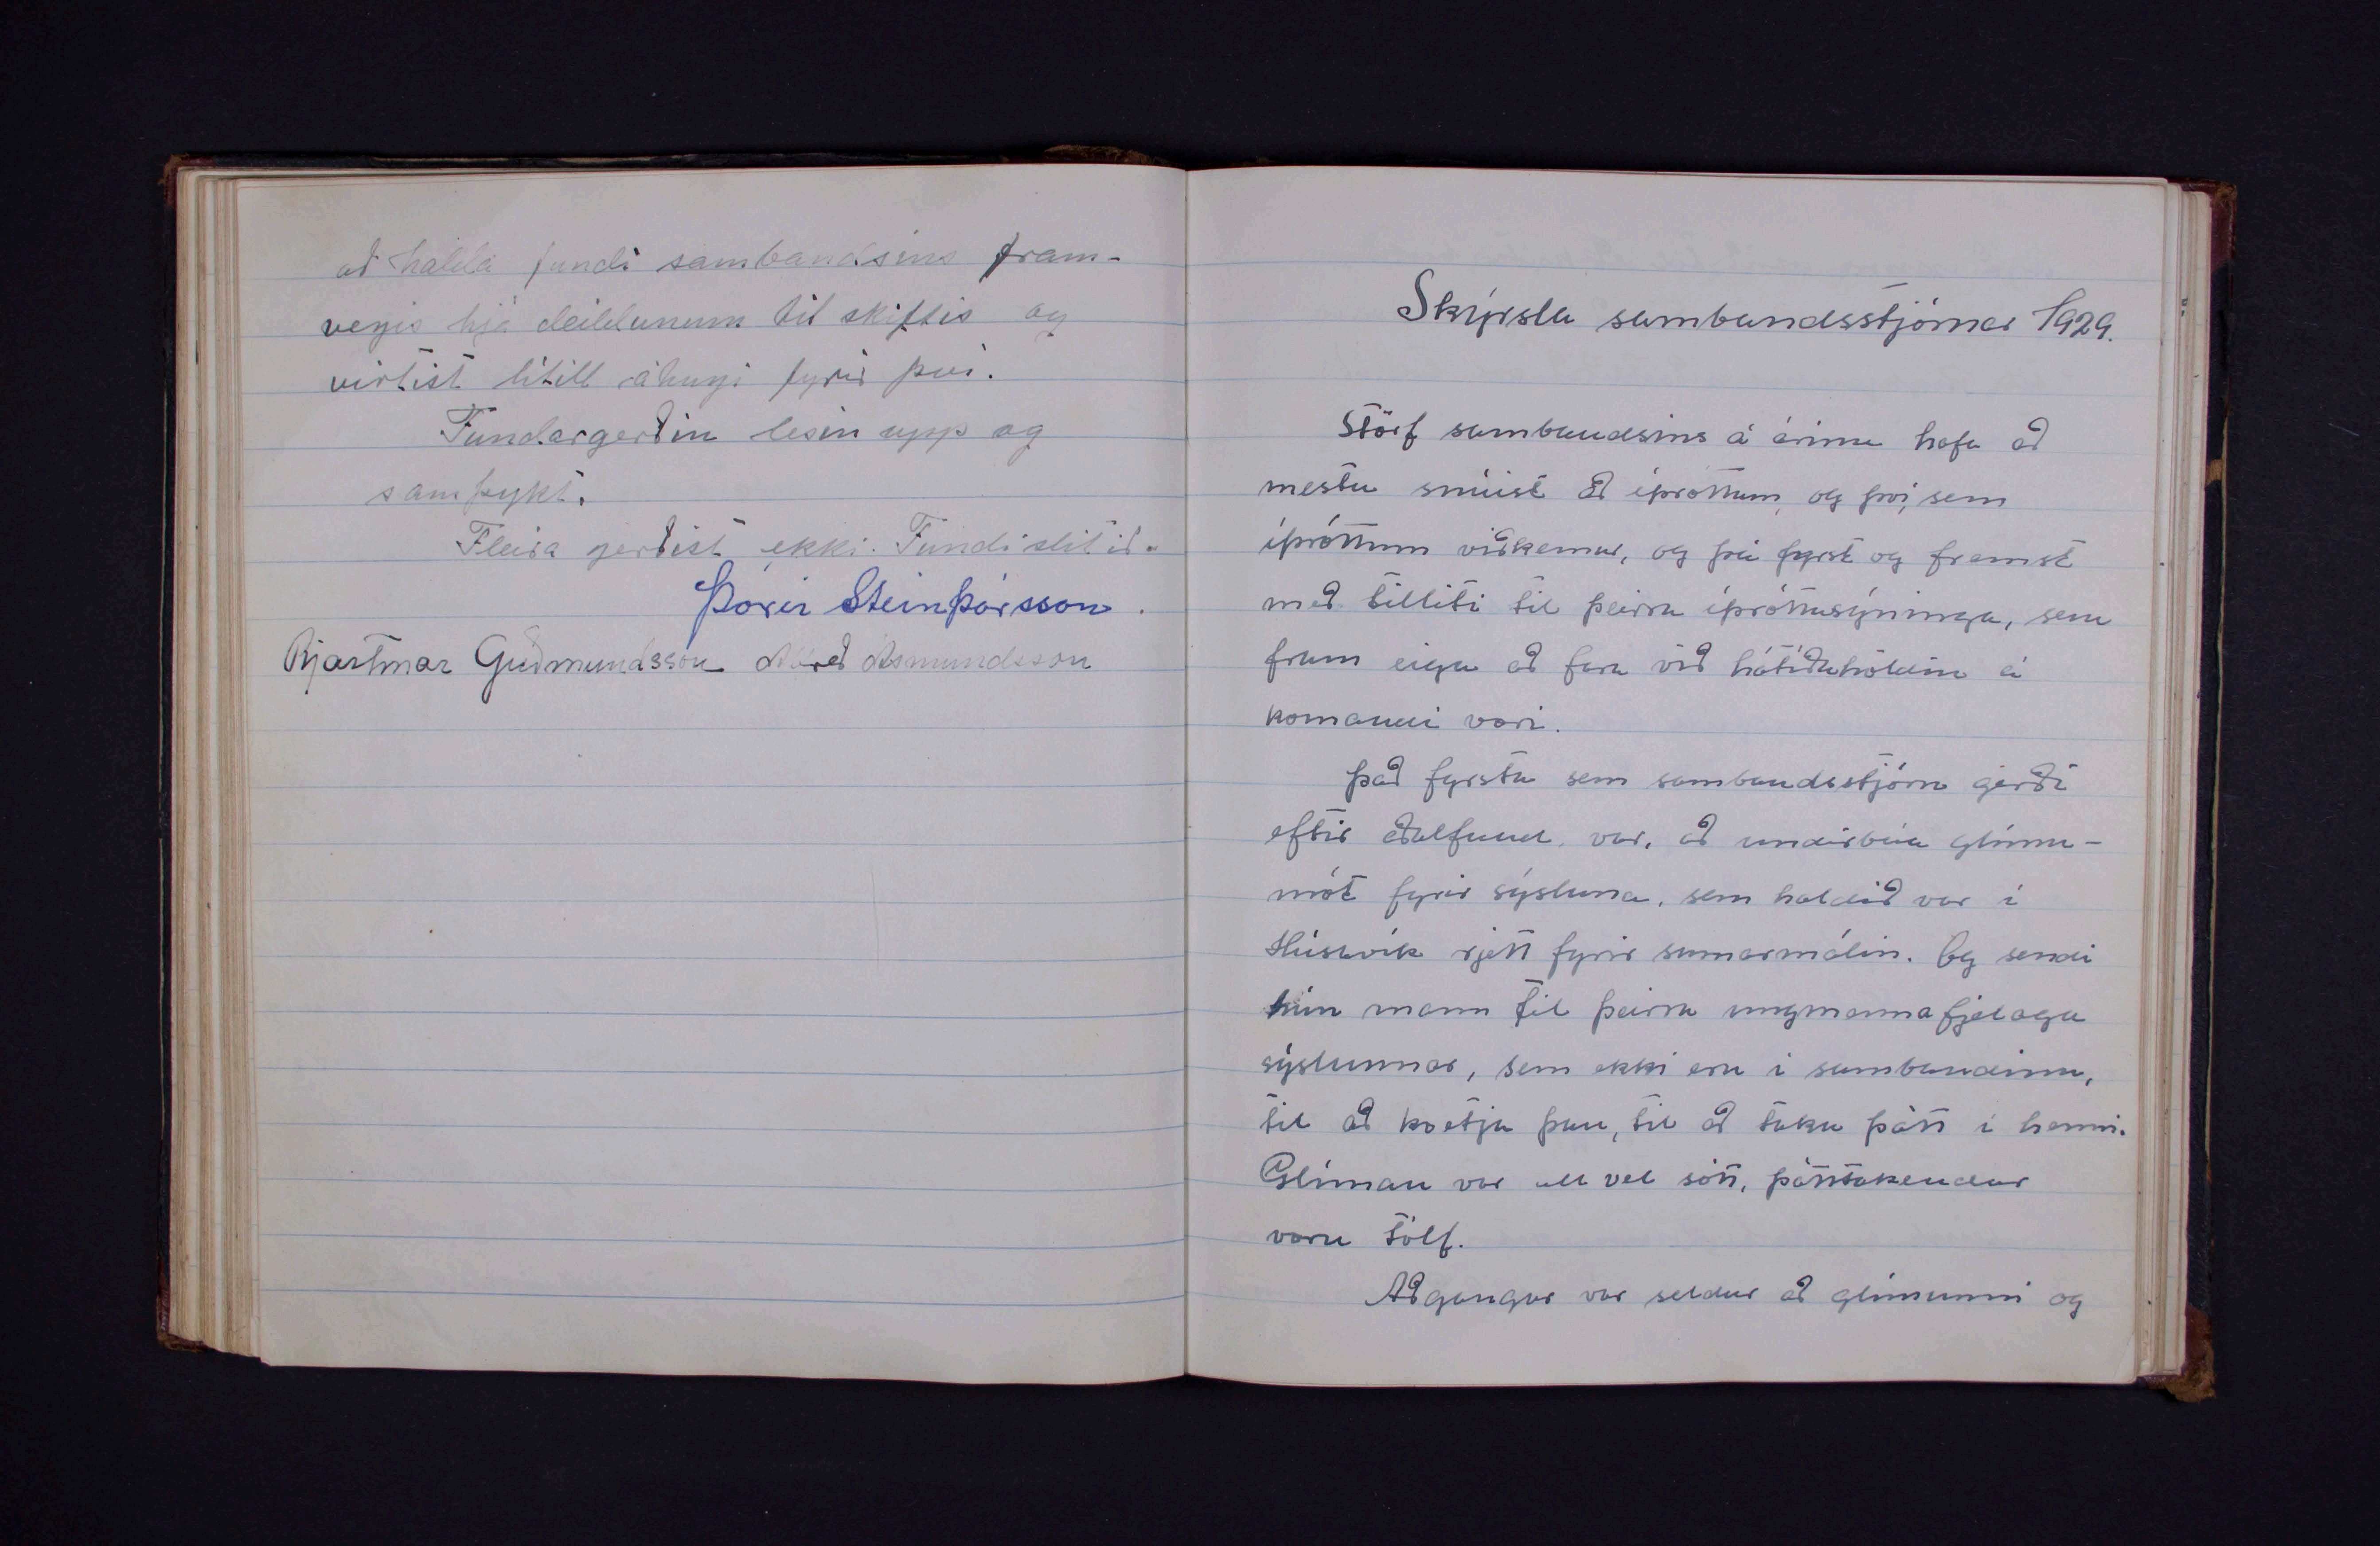 að halda fundi sambandsins fram-
vegis hjá deildunum til skiftis og
virtist lítill áhugi fyrir því.
Fundargerðin lesin upp og
samþykt.
Fleira gerðist ekki. Fundi slitið.
Þórir Steinþórsson.
Bjartmar Guðmundsson Ásmundsson
Skýrsla sambandsstjórnar 1929.
Störf sambandsins á árinu hafa að
mestu snúist að íþróttum, og því, sem
íþróttum viðkemur, og þá fyrst og fremst
með tilliti til þeirra íþróttasýninga, sem
fram eiga að fara við hátíðahöldin á
komandi vori.
Það fyrsta sem sambandsstjórn gerði
eftir aðalfund var, að undirbúa glímu-
mót fyrir sýsluna, sem haldið var í
Húsavík rjett fyrir sumarmálin. Og sendi
hún mann til þeirra ungmennafjelaga
sýslunnar, sem ekki eru í sambandinu,
til að hvetja þau, til að taka þátt í henni.
Glíman var all vel sótt, þátttakendur
voru tólf.
Aðgangur var seldur að glímunni og